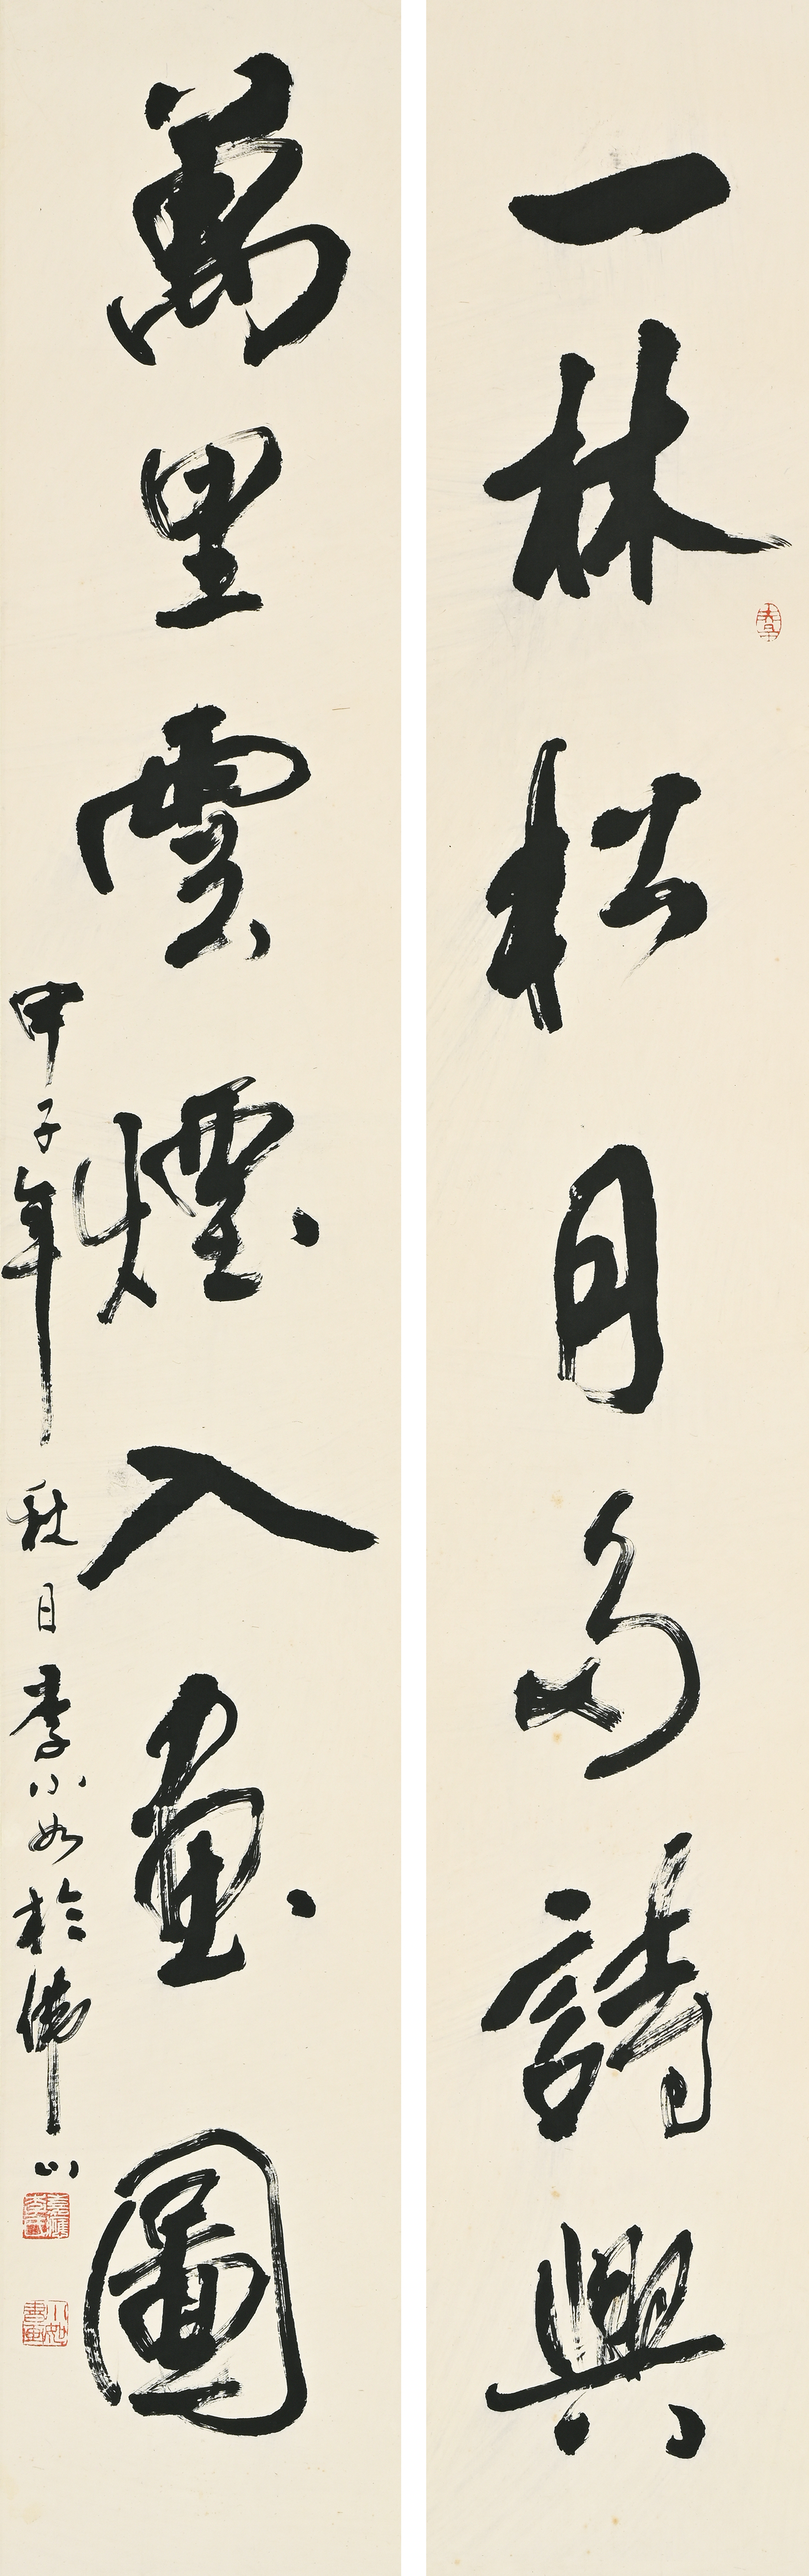 一林松月多詩興
萬里雲煙入畫圖
甲子年秋日李小如於佛山